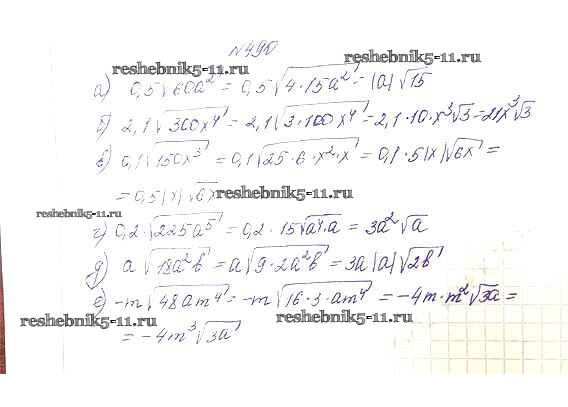 №490
reshebnik5-11.ru
reshebnik5-11.ru
а) 0,5√60a² = 0,5√4·15a² = |a|√15
б) 2,1√300x⁴ = 2,1√3·100x⁴ = 2,1·10·x²√3 = 21x²√3
в) 0,1√150x³ = 0,1√25·6·x²·x = 0,1·5|x|√6x =
= 0,5|x|√6x
reshebnik5-11.ru
reshebnik5-11.ru
г) 0,2√225a⁵ = 0,2·15√a⁴·a = 3a²√a
д) a√18a²b = a√9·2a²b = 3a|a|√2b
е) -m√48am⁴ = -m√16·3·am⁴ = -4m·m²√3a =
reshebnik5-11.ru
reshebnik5-11.ru
= -4m³√3a